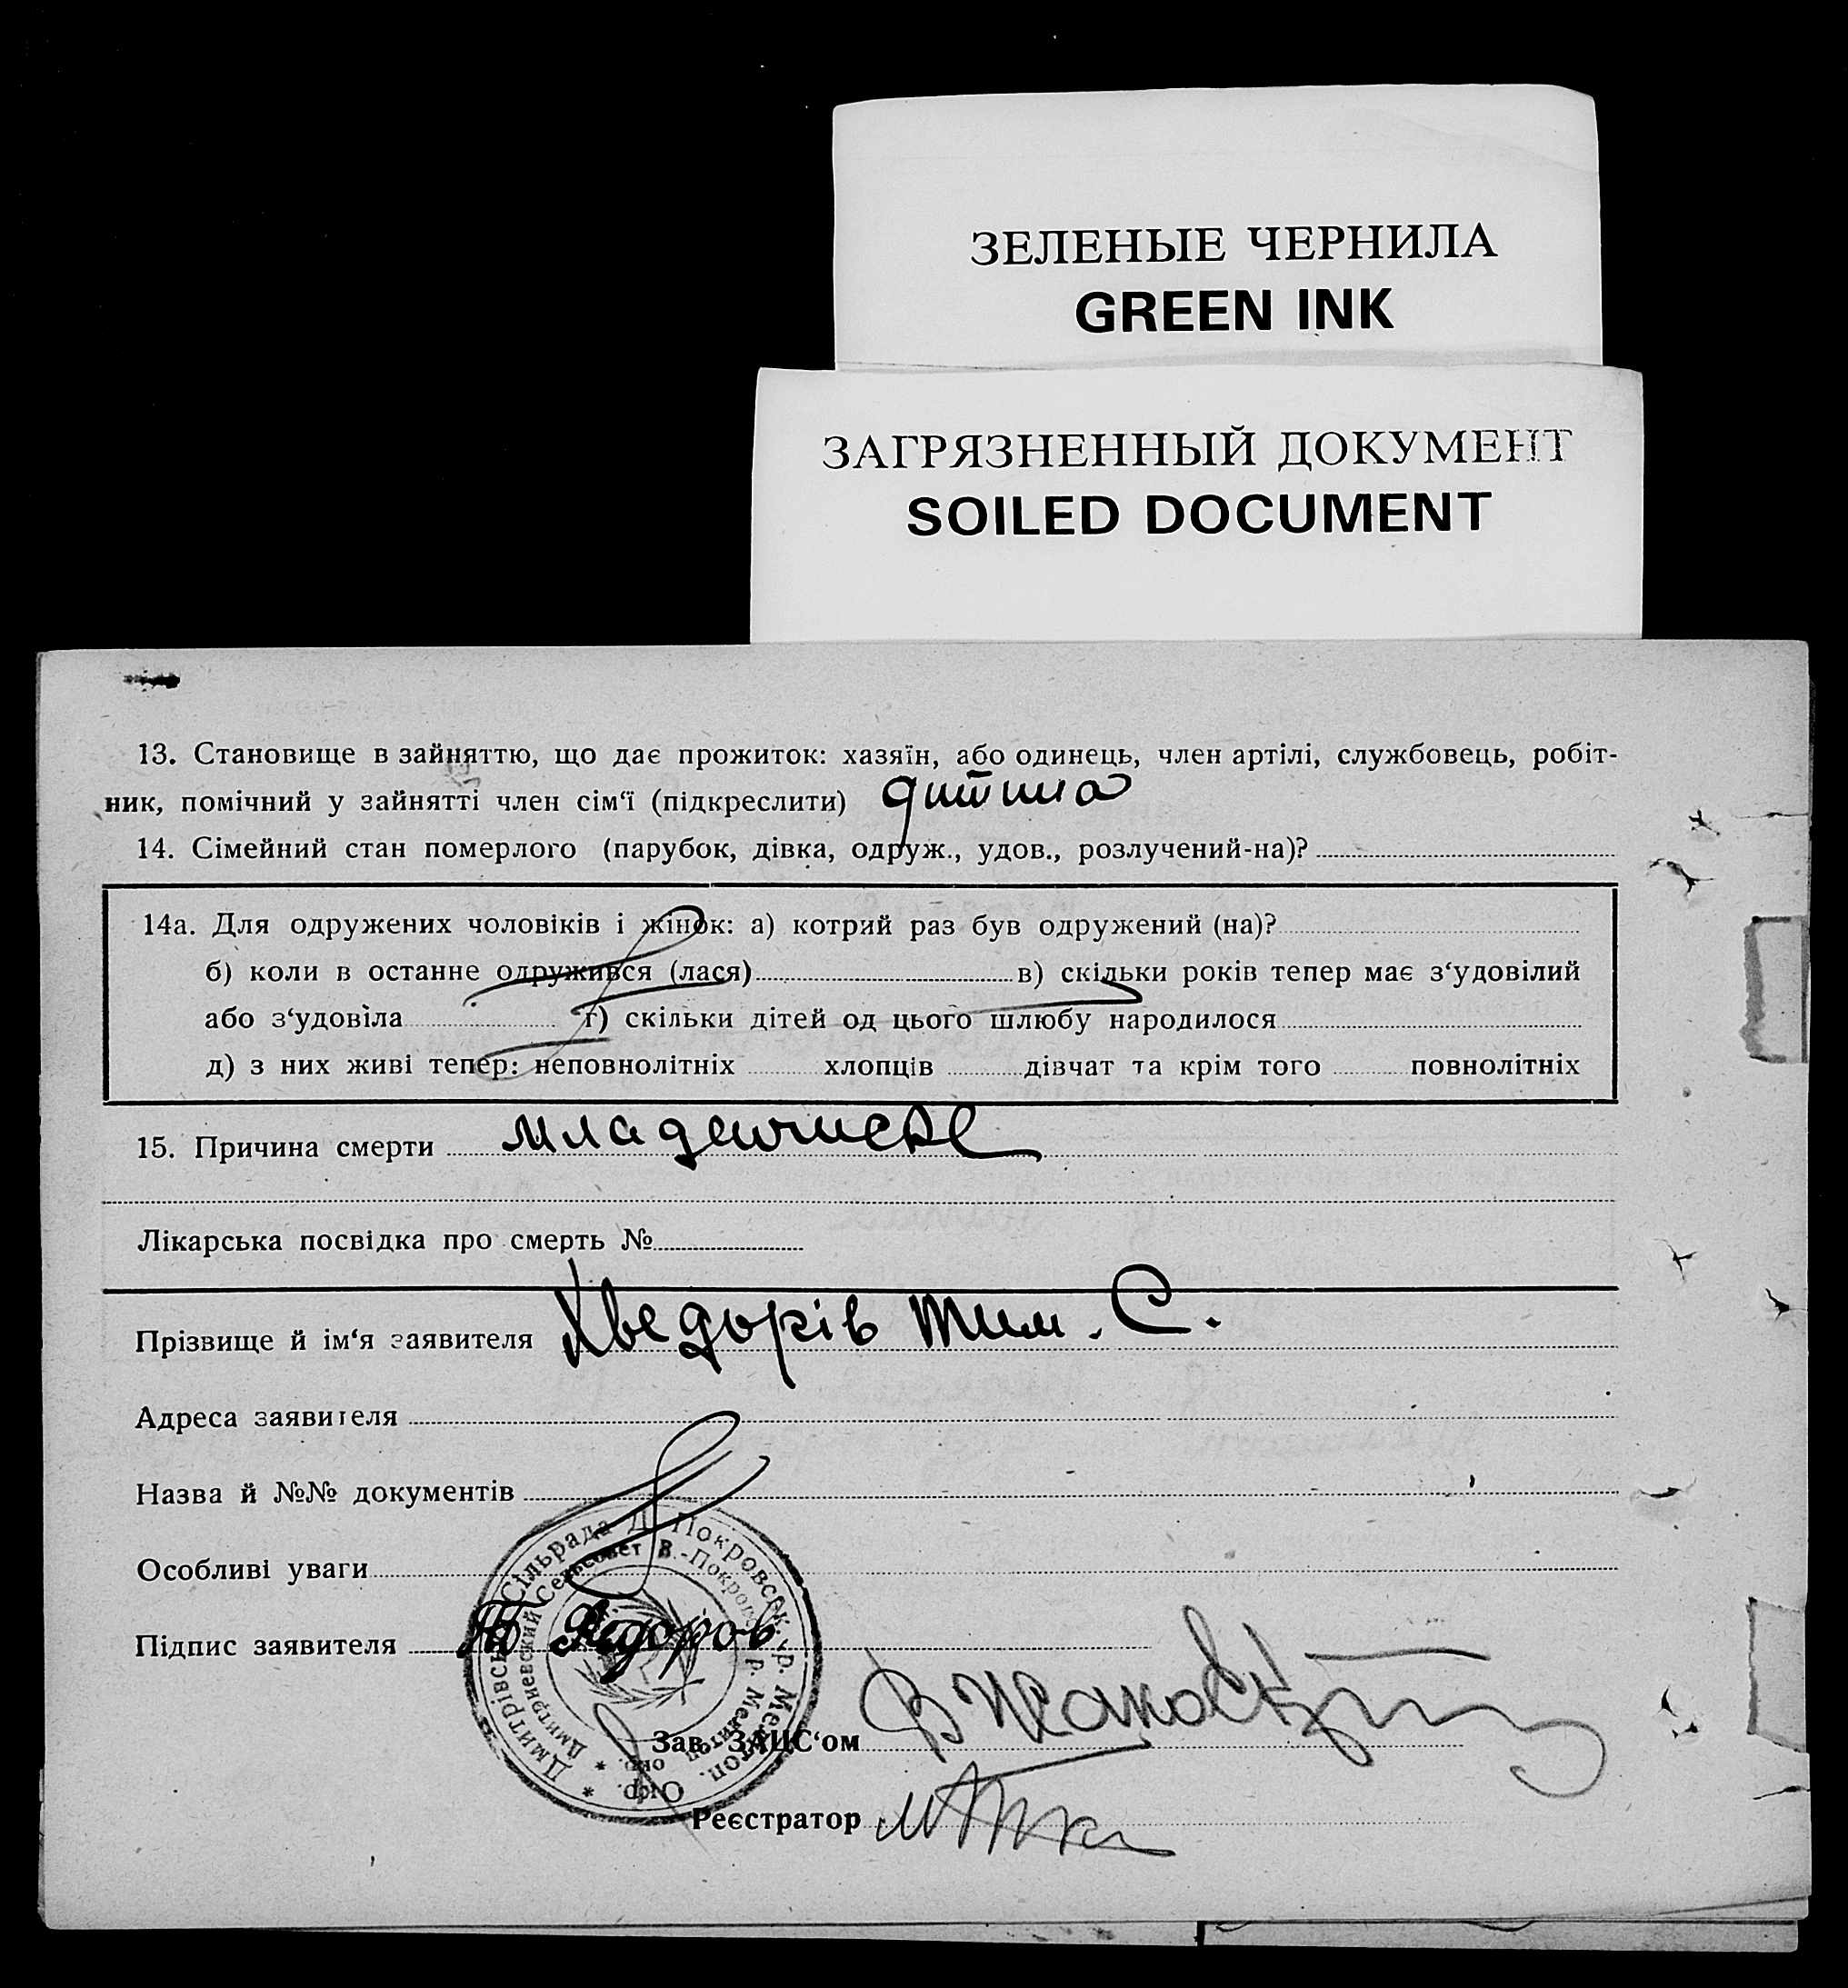 ЗЕЛЕНЫЕ ЧЕРНИЛА
GREEN INK
ЗАГРЯЗНЕННЫЙ ДОКУМЕНТ
SOILED DOCUMENT
13. Становище в зайняттю, що дає прожиток: хазяїн, або одинець, член артілі, службовець, робіт-
ник, помічний у зайнятті член сім‘ї (підкреслити) дитина
14. Сімейний стан померлого (парубок, дівка, одруж., удов., розлучений-на)?
14а. Для одружених чоловіків і жінок: а) котрий раз був одружений (на)?
б) коли в останнє одружився (лася) в) скільки років тепер має з‘удовілий
або з‘удовіла г) скільки дітей од цього шлюбу народилося
д) з них живі тепер: неповнолітніх хлопців дівчат та крім того повнолітніх
15. Причина смерти младенческе
Лікарська посвідка про смерть №
Прізвище й ім‘я заявителя Хведорів Тим. С.
Адреса заявителя
Назва й №№ документів
Особливі уваги
Підпис заявителя
Зав. ЗАЦС‘ом
Реєстратор
Сільрада Д. Покровськ. р. Мелітоп. Окр.
Дмитриевский Сельсовет В.-Покров р. Мелитоп окр.